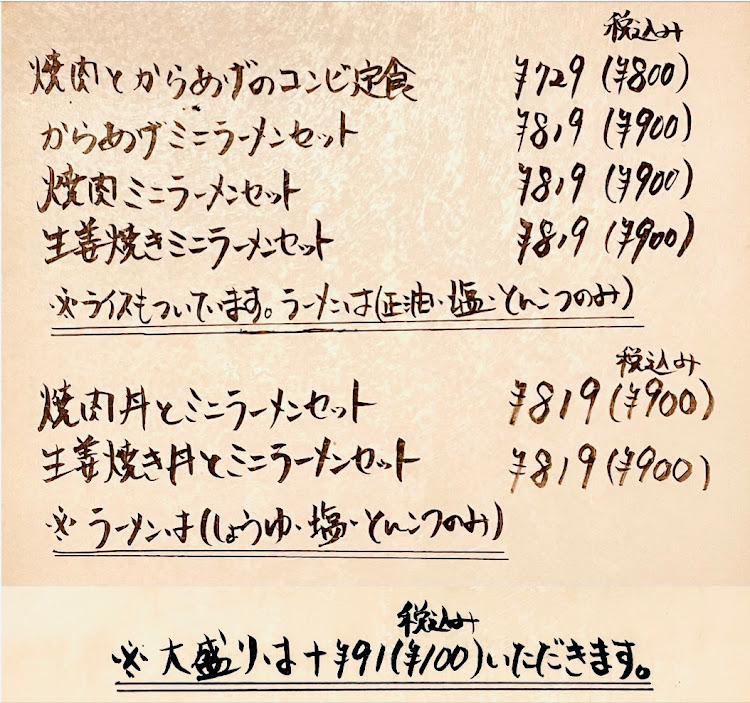 税込み
焼肉とからあげのコンビ定食 ¥729 (¥800)
からあげミニラーメンセット ¥819 (¥900)
焼肉ミニラーメンセット ¥819 (¥900)
生姜焼きミニラーメンセット ¥819 (¥900)
※ライスもついています。ラーメンは(正油・塩・とんこつのみ)
税込み
焼肉丼とミニラーメンセット ¥819 (¥900)
生姜焼き丼とミニラーメンセット ¥819 (¥900)
※ラーメンは(しょうゆ・塩・とんこつのみ)
税込み
※大盛りは+¥91(¥100)いただきます。